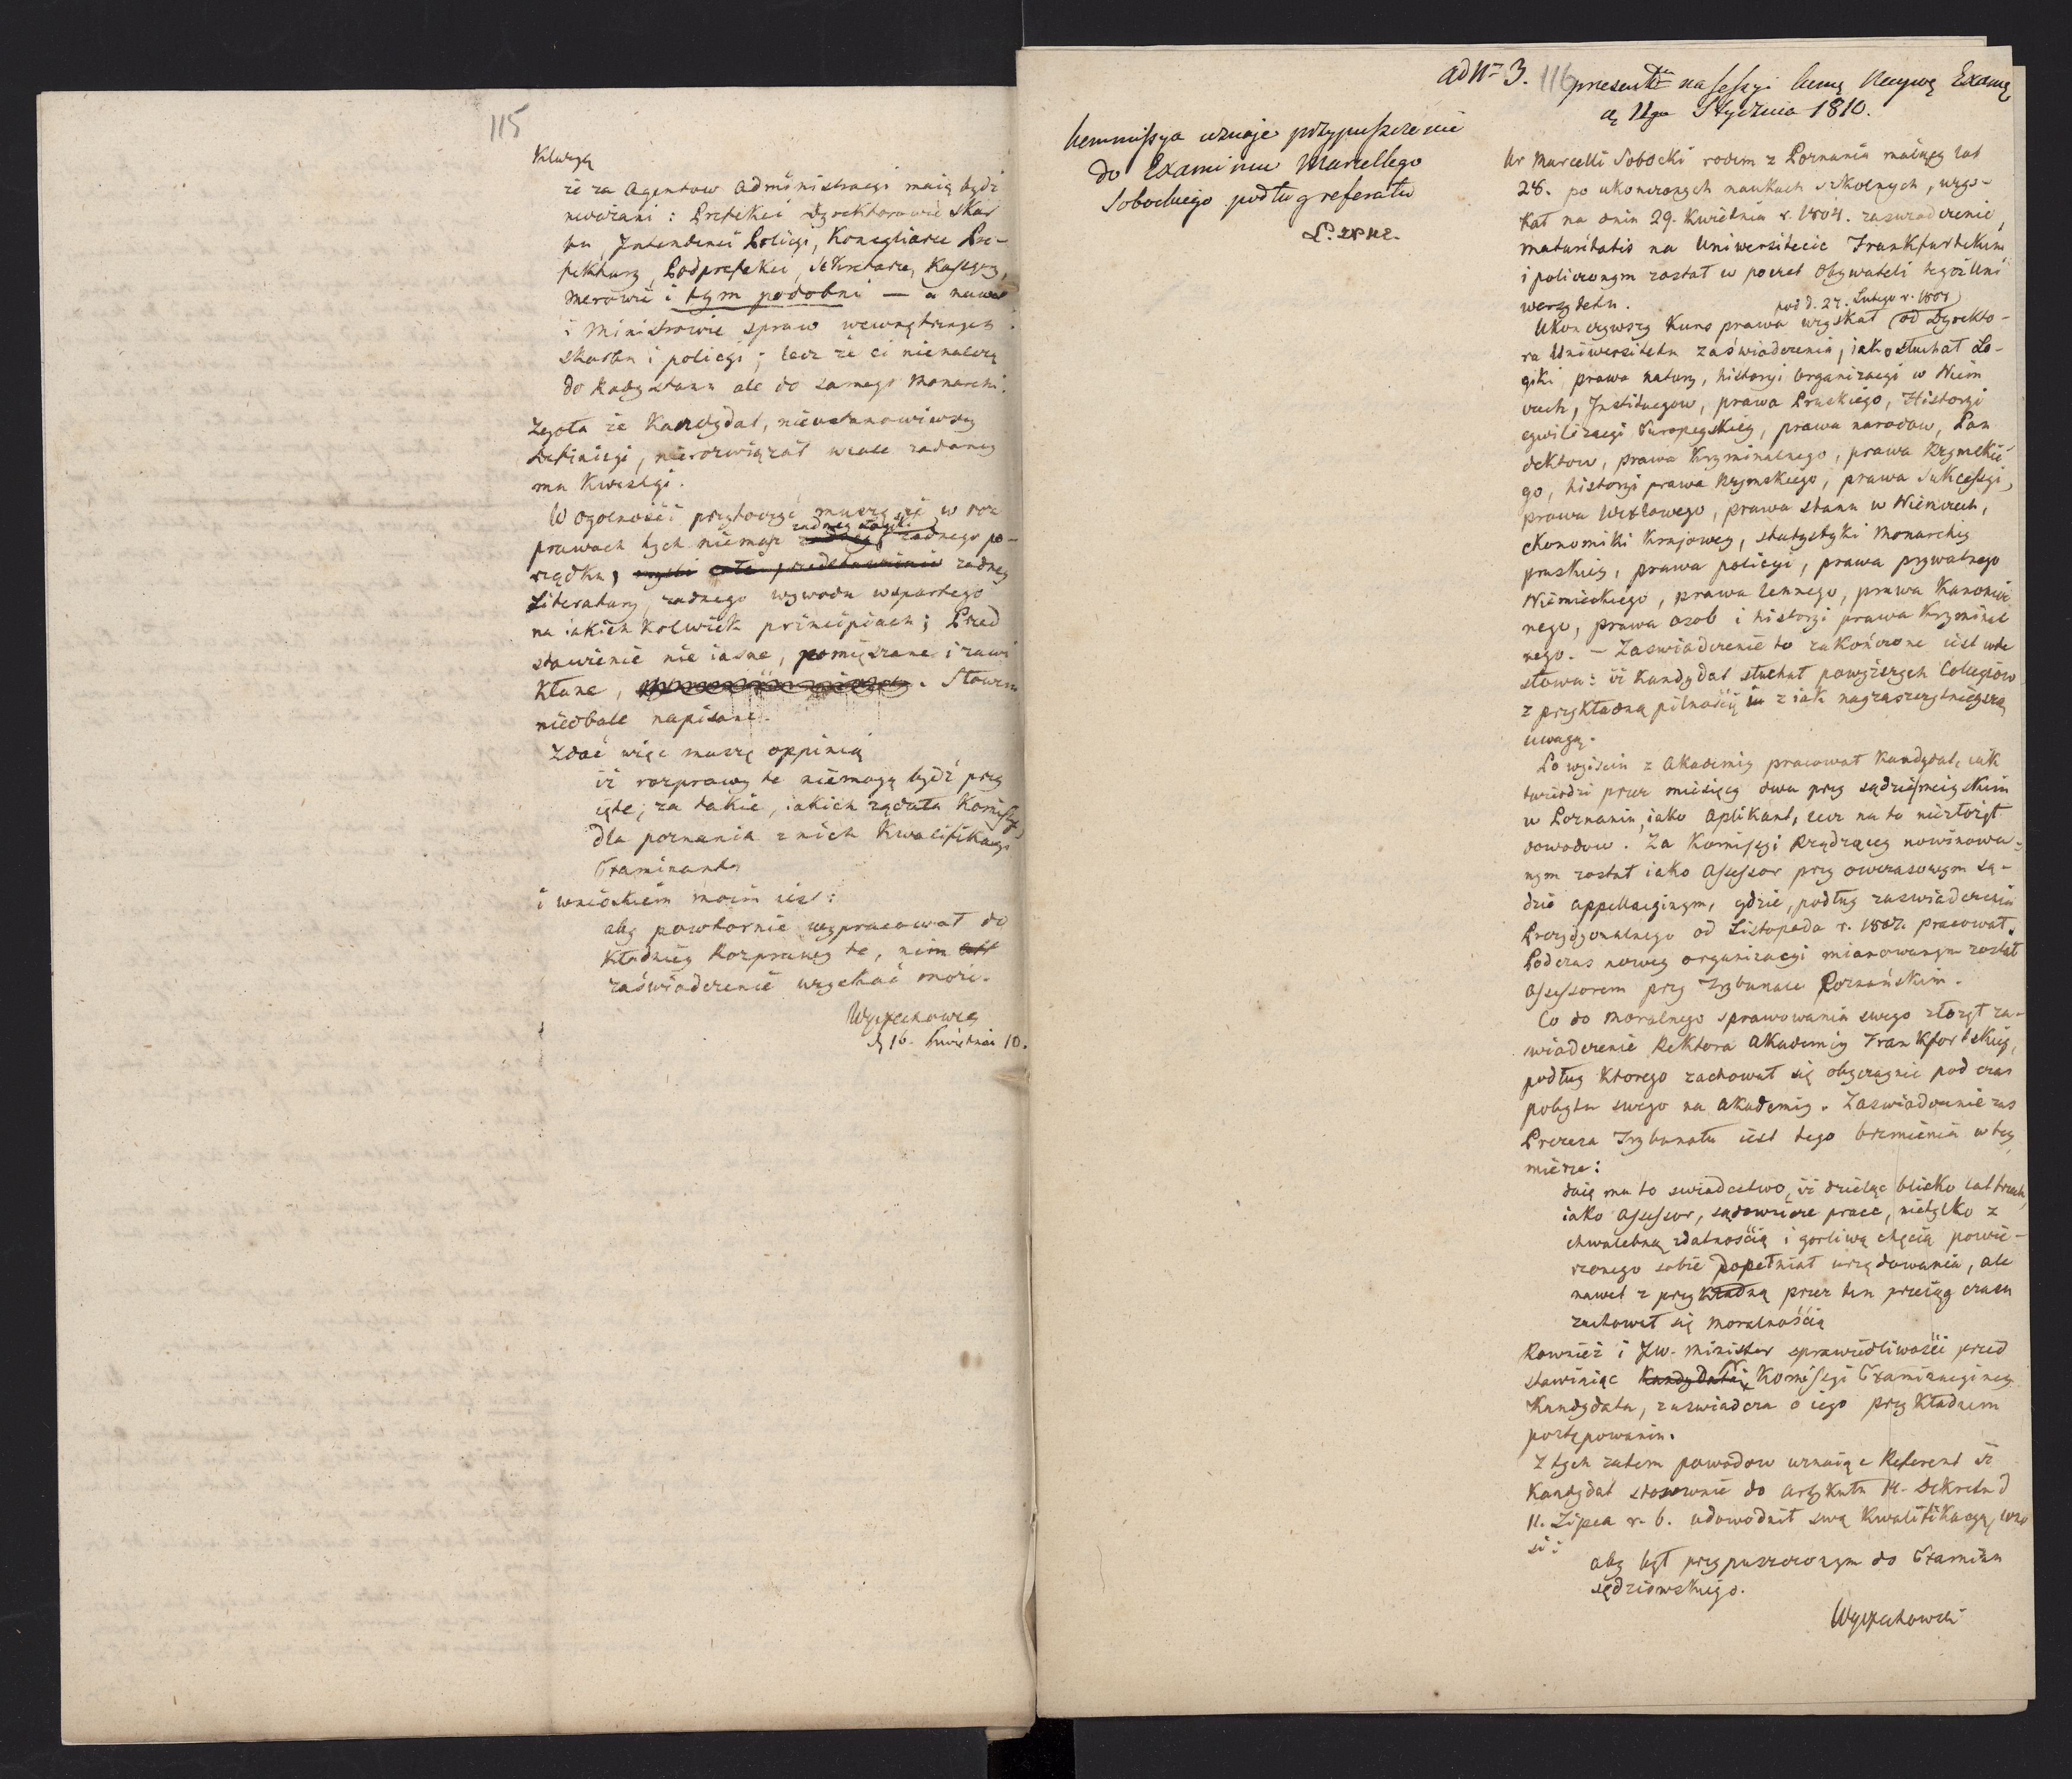 115
że za Agentow Administracyi maią bydź
uważani: Prefekci Dyrektorowie Skar
bu, Intendenci Policyi, Konsyliarze Pre-
fektury, Podprefekci, Sekretarze, Kassyerzy,
Merowie i tym podobni — a nawet
i Ministrowie spraw wewnętrznych
skarbu i policyi; lecz że ci nienależą
do Rady stanu ale do samego Monarchi.
Zgoła że Kandydat, nieustanowiwszy
Definicyi, nierozwiązał wcale zadaney
mu Kwestyi.
W ogolności przytoczyć muszę że w roz
prawach tych niemasz żadney żadnego po-
rządku, żadney
Literatury, żadnego wywodu wspartego
na iakich kolwiek principiach; Przed
stawienie nie iasne, pomięszane i zawi
kłane, . Słowem
niedbale napisane.
Zdać więc muszę oppinią
iż rozprawy te niemogą bydź przy
ięte, za takie, iakich żądała Kommissya
dla poznania z nich Kwalifikacyi
Examinanta
i wnioskiem moim iest:
aby powtornie wypracował do
kładniey Rozprawy te, nim
zaświadczenie uzyskać może.
Wyczechowski
d. 16. Kwietnia 10.
ad Nr 3. 116
Kommissya uznaje przypuszczenie
do Examinu Marcellego
Sobockiego podług referatu
11go Stycznia 1810.
Ur Marcelli Sobocki rodem z Poznania maiący lat
28. po ukończonych naukach szkolnych, uzys-
kał na dniu 29. Kwietnia r. 1804. zaswiadczenie
maturitatis na Uniwersitecie Frankfurtskim
i policzonym został w poczet Obywateli tegoż Uni
wersytetu.
pod d. 27. Lutego r. 1808
Ukończywszy Kurs prawa uzyskał od Dyrekto-
ra Uniwersitetu zaświadczenia, iako słuchał Lo-
giki prawa natury, historyi Organizacyi w Niem
czech, Instytucyow, prawa Pruskiego, Historyi
cywilizacyi Europeyskiey, prawa narodow, Pan
dektow, prawa Kryminalnego, prawa Rzymskie
go, historyi prawa Rzymskiego, prawa Sukcessyi,
prawa Wexlowego, prawa stanu w Niemczech,
ekonomiki Kraiowey, statystyki Monarchiy
pruskiey, prawa policyi, prawa prywatnego
Niemieckiego, prawa lennego, prawa Kanonicz
nego, prawa osob i historyi prawa Kryminal
nego. — Zaswiadczenie to zakończone iest wte
słowa: iż Kandydat słuchał powyższych Collegiow
z przykładną pilnością z iak nayzaszczytnieyszą
uwagą.
Po wyisciu z Akademiy pracował Kandydat, iak
twierdzi przez miesięcy dwa przy sądzie mieyskim
w Poznaniu, iako Aplikant, lecz na to niezłożył
dowodow. Za Komissyi Rządzącey nominowa-
nym został iako Assessor przy owczasowym są-
dzie appellacyinym, gdzie, podług zaswiadczenia
Prezydyonalnego od Listopada r. 1807. pracował.
Podczas nowey organizacyi mianowanym został
Assessorem przy Trybunale Poznańskim.
Co do moralnego sprawowania swego złożył za-
swiadczenie Rektora Akademiy Frankfortskiey,
podług ktorego zachował się obyczaynie pod czas
pobytu swego na Akademiy. Zaswiadczenie zas
Prezesa Trybunału iest tego brzmienia w tey
mierze:
daię mu to swiadectwo, iż dzieląc blisko lat trzech,
iako Assessor, sądownicze prace, nietylko z
chwalebną zdatnością i gorliwą chęcią powie-
rzonego sobie popełniał urzędowania, ale
nawet z przykładną przez ten przeciąg czasu
zachował się moralnością
Rownież i JW. Minister sprawiedliwości przed
stawiaiąc Kandydata Komissyi Examinacyiney
Kandydata, zaswiadcza o iego przykładnem
postępowaniu.
Z tych zatem powodow uznaiąc Referent iż
Kandydat stosownie do Artykułu 14. Dekretu d
11. Lipca r. b. udowodnił swą Kwalifikacyą, wno
si:
aby był przypuszczonym do Examinu
sędziowskiego.
Wyczechowski